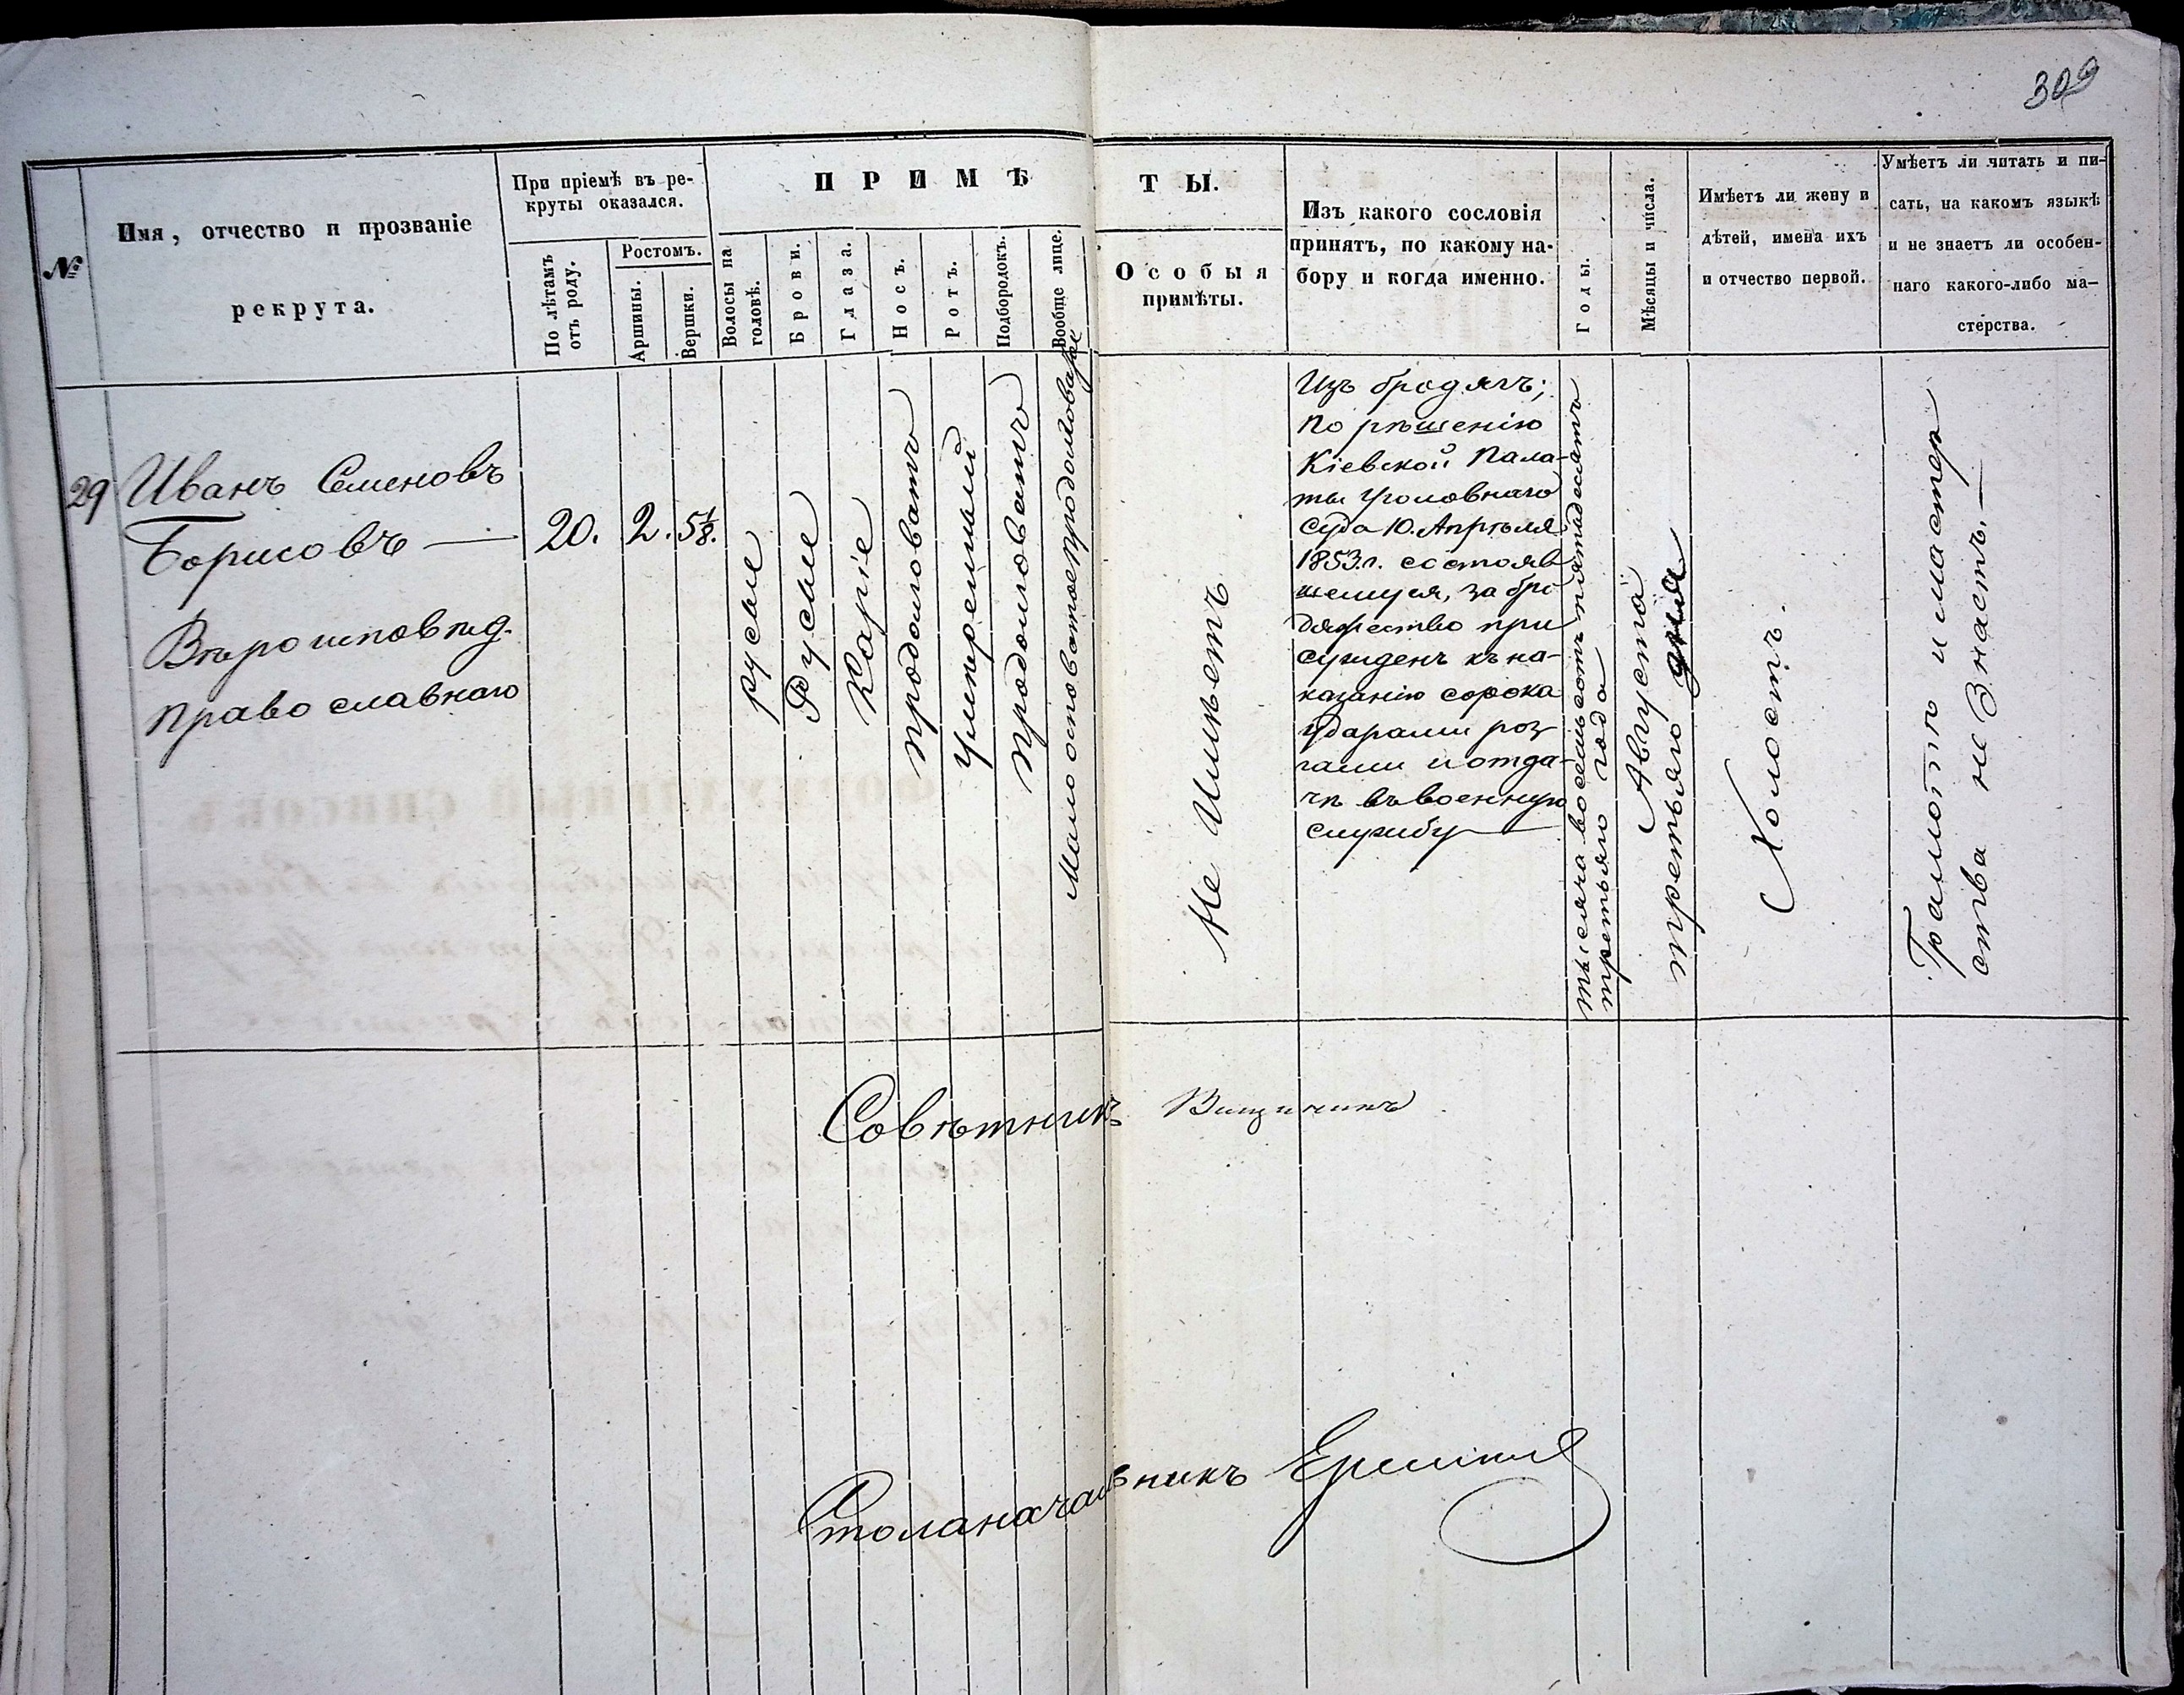 309
№
Имя, отчество и прозваніе
рекрута.
При пріемѣ въ ре-
круты оказался.
По лѣтамъ
отъ роду.
Ростомъ.
Аршины.
Вершки.
ПРИМѢ
ТЫ.
Волосы на
головѣ.
Брови.
Глаза.
Носъ.
Ротъ.
Подбородокъ.
Вообще лице.
Особыя
примѣты.
Изъ какого сословія
принятъ, по какому на-
бору и когда именно.
Годы.
Мѣсяцы и числа.
Имѣетъ ли жену и
дѣтей, имена ихъ
и отчество первой.
Умѣетъ ли читать и пи-
сать, на какомъ языкѣ
и не знаетъ ли особен-
наго какого-либо ма-
стерства.
29
Иванъ Семеновъ
Борисовъ —
Вѣроисповѣд.
Православнаго
20.
2.
5 1/8.
русые
Русые
Каріе
продолговатъ
Умѣренный
продолговатъ
Малоосповатое продолговатое
Не Имѣетъ
Изъ бродягъ;
по рѣшенію
Кіевской Пала-
ты Уголовнаго
Суда 10. Апрѣля
1853.г. состояв
шемуся, за бро
дяжество при
сужденъ къ на-
казанію сорока
ударами роз-
гами и отда-
чѣ въ военную
службу —
тысяча восемьсотъ пятьдесятъ
третьяго года
Августа
третьяго дня
Холостъ.
Грамотѣ и мастер
ства не Знаетъ. —
Совѣтникъ
Столаначальникъ